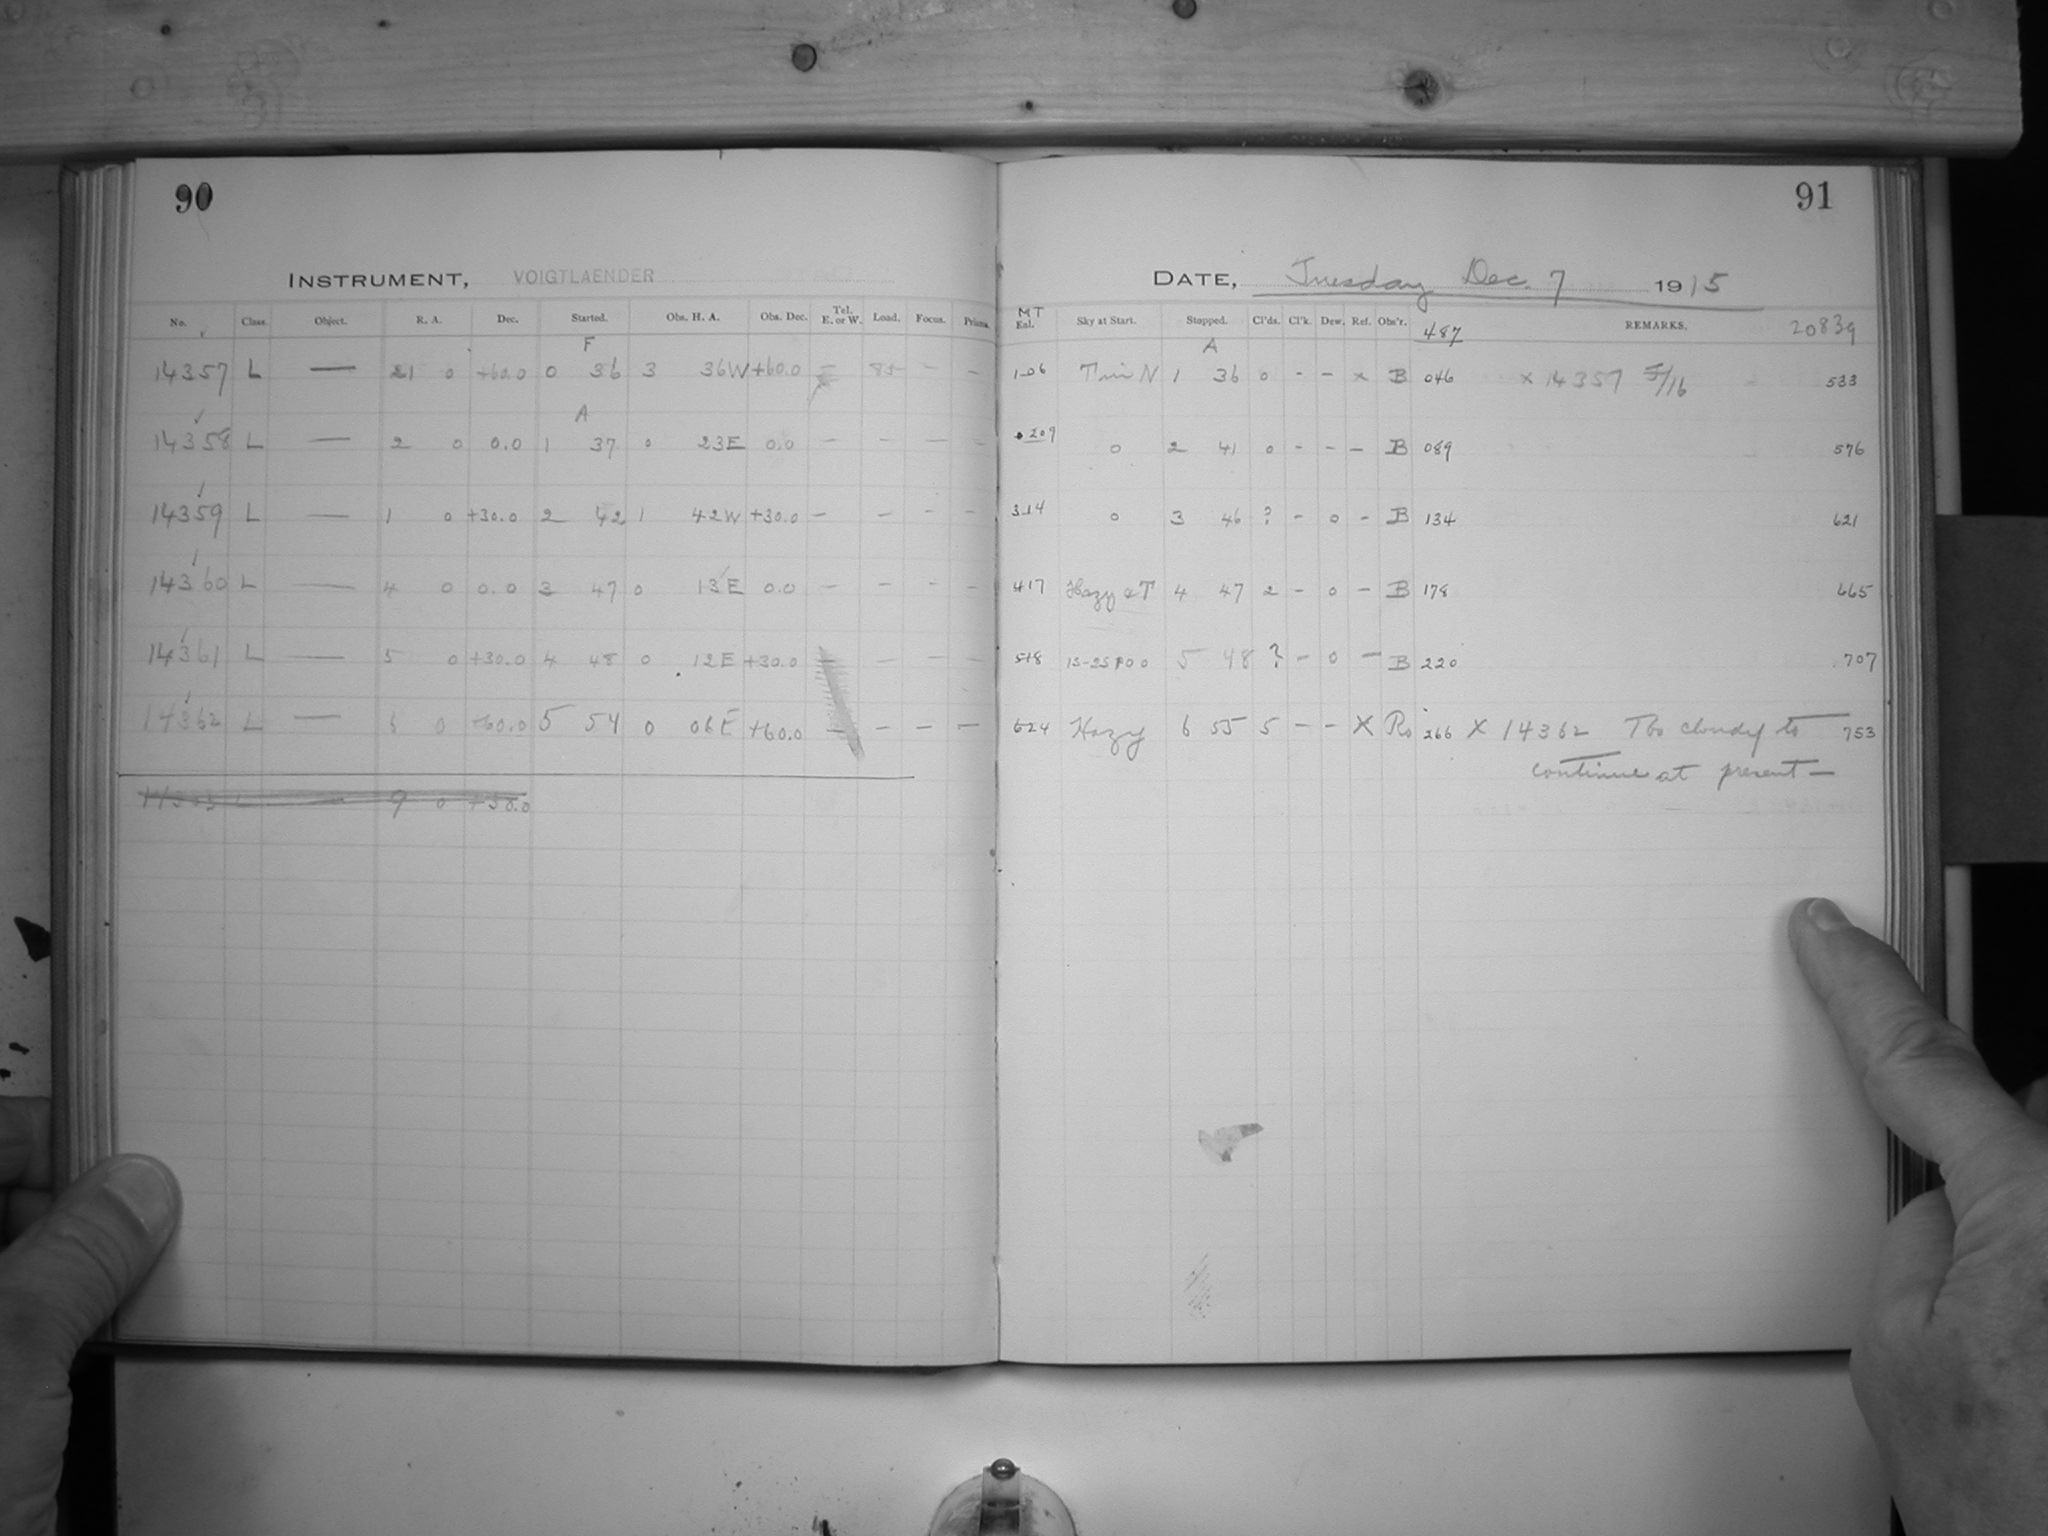 90
91
INSTRUMENT, VOIGTLAENDER
DATE, Tuesday Dec. 7 1915
No. Class. Object. R. A. Dec. Started. Obs. H. A. Obs. Dec. Tel. E. or W. Load. Focus. Prisms.
MT Exl. Sky at Start. Stopped. Cl'ds. Cl'k. Dew. Ref. Obs'r. 487 REMARKS. 20839
F
A
14357 L — 21 0 +60.0 0 36 3 36W +60.0 — 85 — — 106 N 1 36 0 - - x B 046 x 14357 5/16 533
A
14358 L — 2 0 0.0 1 37 0 23E 0.0 — — — — 209 0 2 41 0 - - - B 089 576
14359 L — 1 0 +30.0 2 42 1 42W +30.0 — — — — 314 0 3 46 ? - 0 - B 134 621
14360 L — 4 0 0.0 3 47 0 13E 0.0 — — — — 417 Hazy 4 47 2 - 0 - B 178 665
14361 L — 5 0 +30.0 4 48 0 12E +30.0 — — — — 518 5 48 ? - 0 - B 220 707
14362 L — 6 0 +60.0 5 54 0 06E +60.0 — — — — 624 Hazy 6 55 5 - - X Ro 266 X 14362 Too cloudy to 753
continue at present —
14363 L — 9 0 +30.0